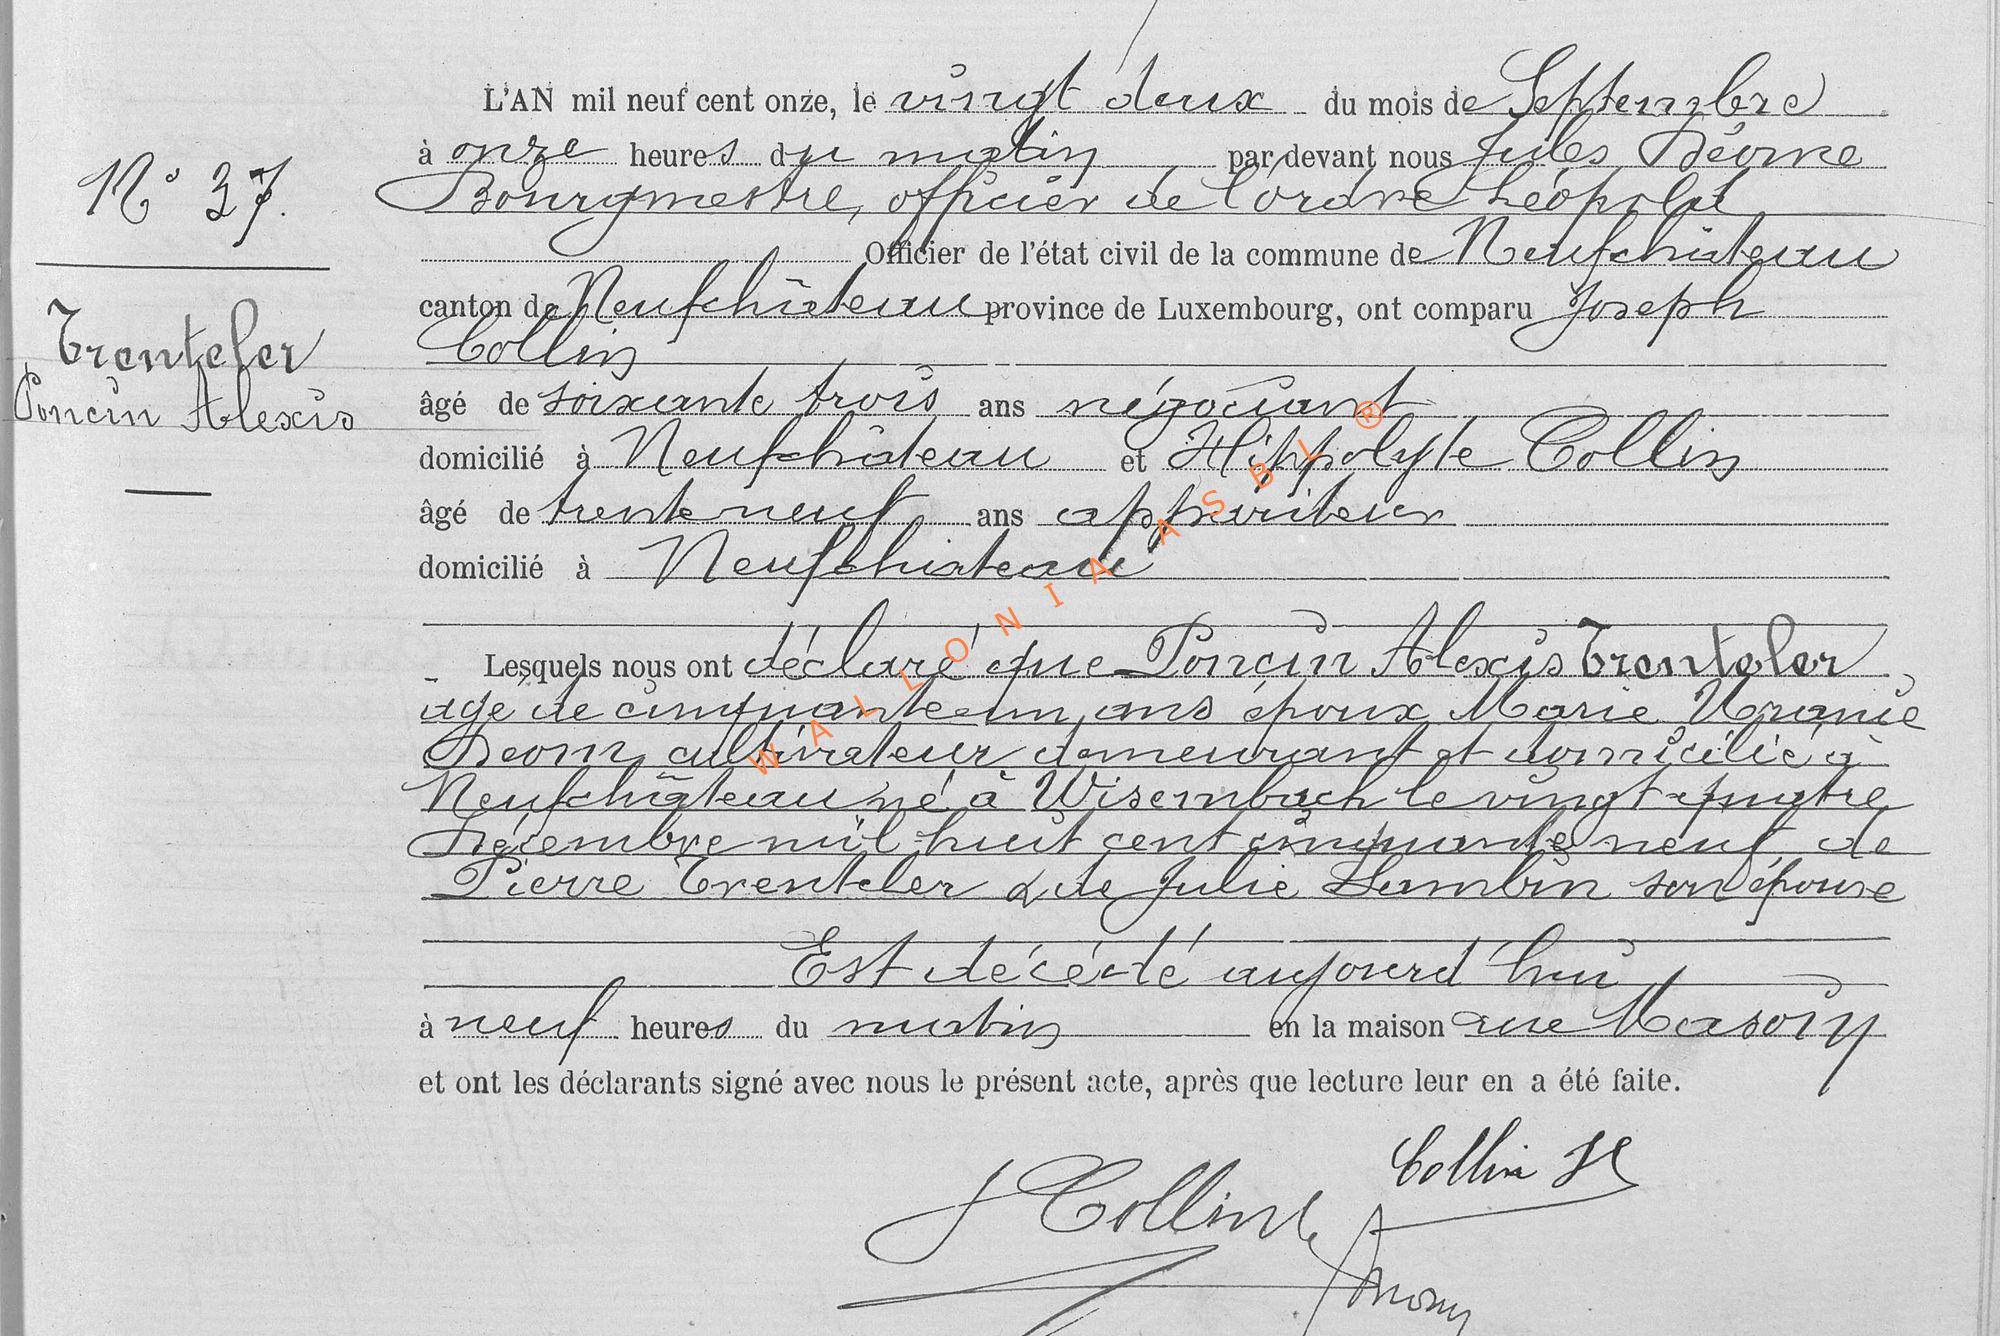 L'AN mil neuf cent onze, le vingt deux du mois de Septembre
à onze heures du matin par devant nous Jules
N° 37.
Bourgmestre, officier de l'ordre Léopold
Officier de l'état civil de la commune de Neufchâteau
canton de Neufchâteau province de Luxembourg, ont comparu Joseph
Collin
Trenteler
Poncin Alexis
âgé de soixante trois ans négociant
domicilié à Neufchâteau et Hippolyte Collin
âgé de trente neuf ans appariteur
domicilié à Neufchâteau
Lesquels nous ont déclaré que Poncin Alexis Trenteler
âgé de cinquante un ans époux Marie Uranie
Deom cultivateur demeurant et domicilié à
Neufchâteau né à Wisembach le vingt quatre
Décembre mil huit cent cinquante neuf de
Pierre Trenteler & de Julie Lambin son épouse
Est décédé aujourd'hui
à neuf heures du matin en la maison rue
et ont les déclarants signé avec nous le présent acte, après que lecture leur en a été faite.
Collin H
J Collin
WALLONIA ASBL ®